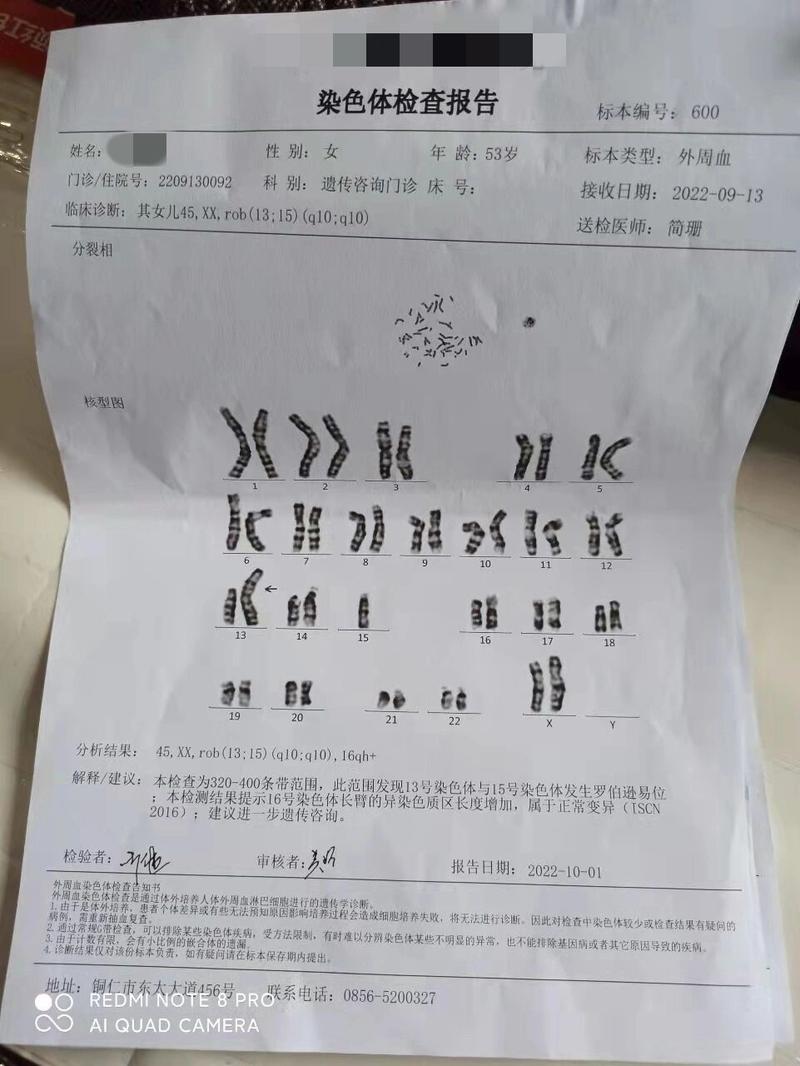 染色体检查报告
标本编号: 600
姓名:
性 别: 女
年 龄: 53岁
标本类型: 外周血
门诊/住院号: 2209130092
科 别: 遗传咨询门诊
床 号:
接收日期: 2022-09-13
临床诊断: 其女儿45,XX,rob(13;15)(q10;q10)
送检医师: 简珊
分裂相
核型图
1 2 3 4 5
6 7 8 9 10 11 12
13 14 15 16 17 18
19 20 21 22 X Y
分析结果: 45,XX,rob(13;15)(q10;q10),16qh+
解释/建议: 本检查为320-400条带范围，此范围发现13号染色体与15号染色体发生罗伯逊易位
；本检测结果提示16号染色体长臂的异染色质区长度增加，属于正常变异（ISCN
2016）；建议进一步遗传咨询。
检验者:
审核者:
报告日期: 2022-10-01
外周血染色体检查告知书
外周血染色体检查是通过体外培养人体外周血淋巴细胞进行的遗传学诊断。
1.由于是体外培养，患者个体差异或有些无法预知原因影响培养过程会造成细胞培养失败，将无法进行诊断。因此对检查中染色体较少或检查结果有疑问的
病例，需重新抽血复查。
2.通过常规G带检查，可以排除某些染色体疾病，受方法限制，有时难以分辨染色体某些不明显的异常，也不能排除基因病或者其它原因导致的疾病。
3.由于计数有限，会有小比例的嵌合体的遗漏。
4.诊断结果仅对该份标本负责，如有疑问请在标本保存期内提出。
地址: 铜仁市东太大道456号
联系电话: 0856-5200327
REDMI NOTE 8 PRO
AI QUAD CAMERA